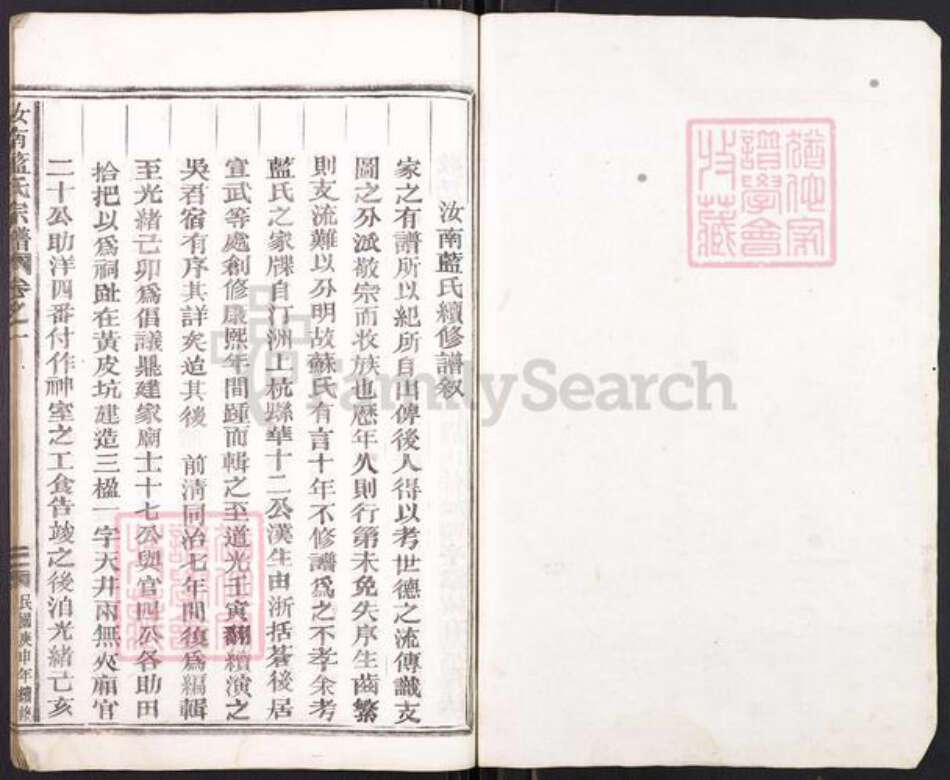 汝南藍氏續修譜叙
家之有譜所以紀所自出俾後人得以考世德之流傳識支
圖之分派敬宗而收族也歷年久則行第未免失序生齒繁
則支流難以分明故蘇氏有言十年不修譜為之不孝余考
藍氏之家牒自汀洲上杭縣華十二公漢生由浙括蒼後居
宣武等處創修康熙年間踵而輯之至道光壬寅翻續演之
吳君宿有序其詳矣迨其後 前清同治七年間復為編輯
至光緒己卯為倡議鼎建家廟士十七公與官四公各助田
拾把以為祠趾在黃皮坑建造三楹一字天井兩無夾廂官
二十公助洋四番付作神室之工食告竣之後泊光緒己亥
汝南藍氏宗譜 卷之一
民國庚申年續修
譜學會
收藏
FamilySearch